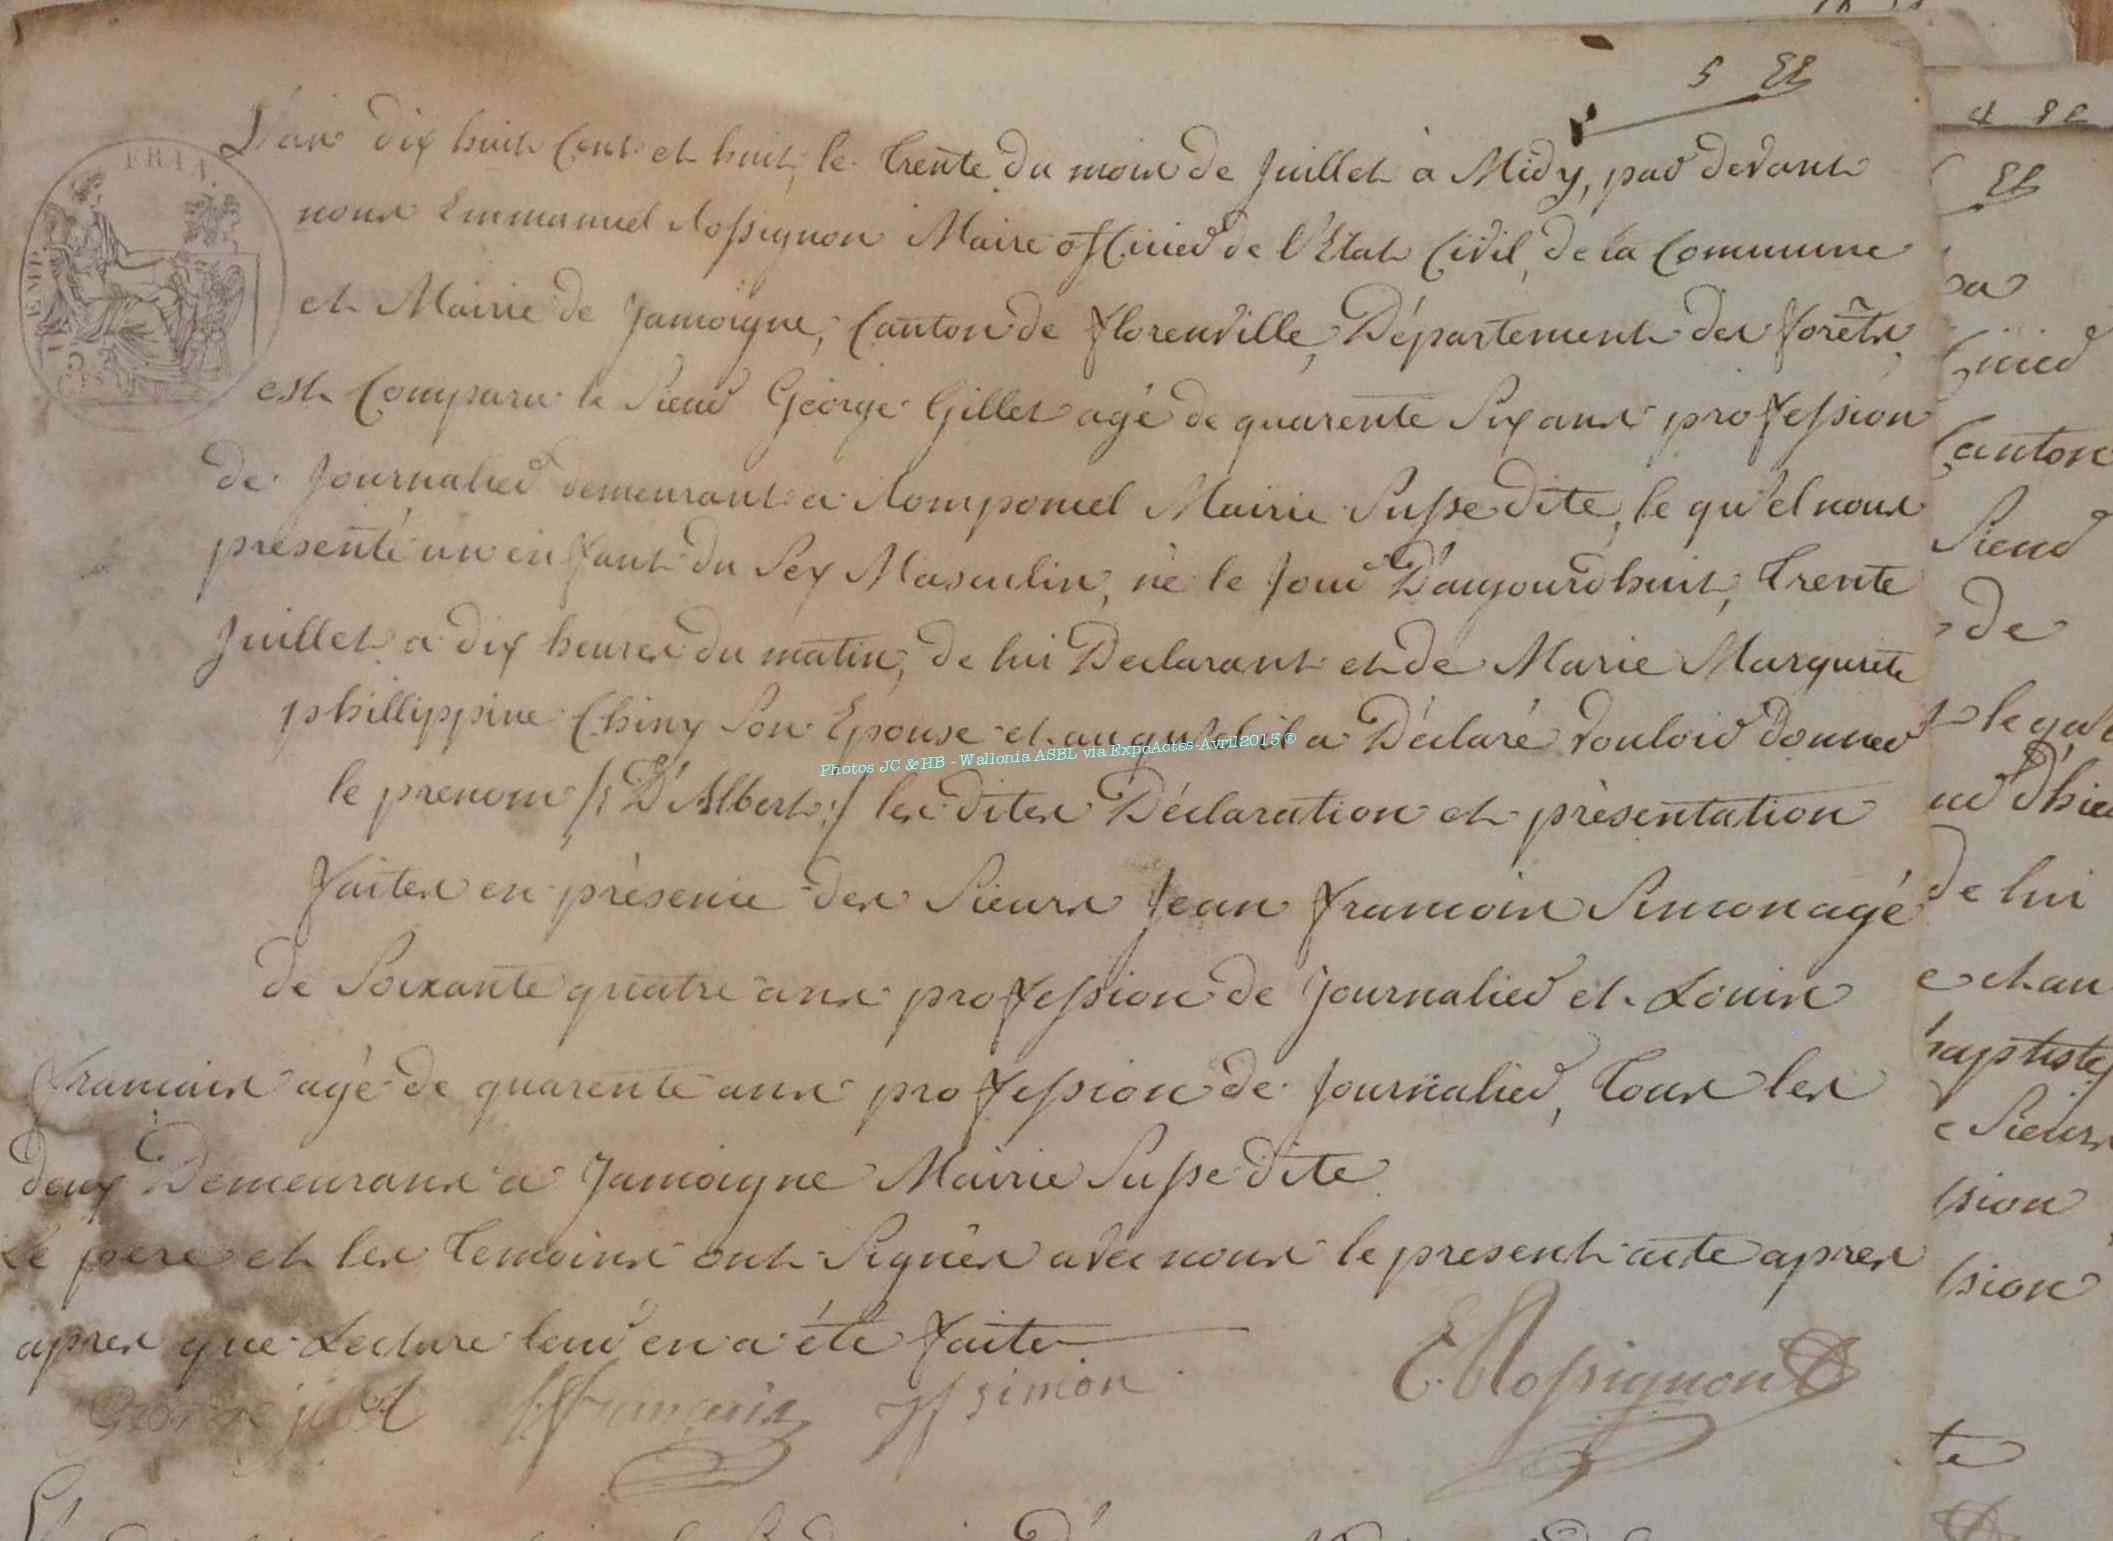 5 ER
L'an dix huit Cent et huit, le trente du mois de Juillet à Midy, par devant
nous Emmanuel Rossignon Maire officier de l'Etat Civil, de la Commune
et Mairie de Jamoigne, Canton de florenville, Département des forêts,
est Comparu le Sieur George Gillet agé de quarente Six ans profession
de Journalier demeurant a Romponcel Mairie Susse dite, le qu'el nous
présenté un enfant du Sex Masculin, né le Jour D'aujourdhuit, trente
Juillet a dix heures du matin, de lui Declarant et de Marie Margurite
phillippine Chiny Son Epouse et au quel il a Déclaré vouloir donner
le prenom /: D'Albert :/ les dites Déclaration et présentation
faites en présence des Sieurs Jean francois Simon agé
de Soixante quatre ans profession de Journalier et Louis
francois agé de quarente ans profession de Journalier, tous les
deux Demeurans a Jamoigne Mairie Susse dite
Le père et les temoins ont Signés avec nous le present acte apres
apres que Lecture leur en a été faite
George jilet françois jf simon E. Rossignon
Photos JC & HB - Wallonia ASBL via ExpoActes-Avril 2015 ©
4 ER
ER
Canton
Sieur
de
le qu'e
d'hier
de lui
et au
baptiste
Sieurs
ssion
ssion
te